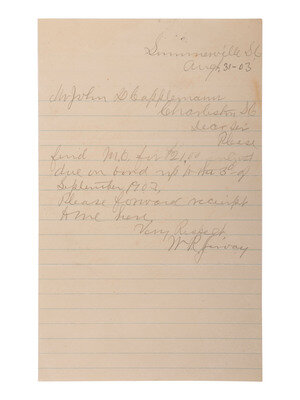 Summerville SC
Aug 31-03
Mr John D Capplemann
Charleston, SC
Dear Sir
Please
find M.O. for $21.00
due on bond up to the 3d of
September, 1903,
Please forward receipt
to me here,
Very Respct
W R